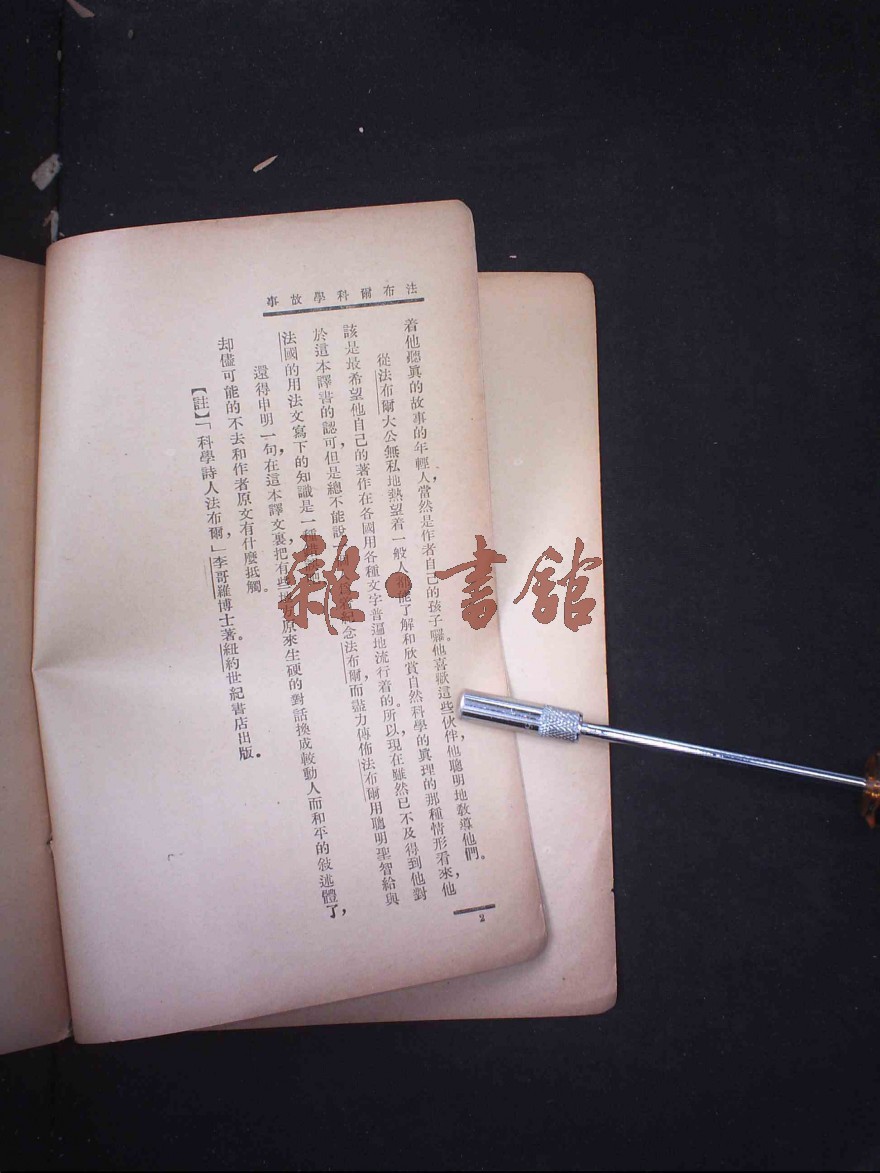 法布爾科學故事
着他聽眞的故事的年輕人，當然是作者自己的孩子囉。他喜歡這些伙伴，他聰明地敎導他們。
從法布爾大公無私地熱望着一般人都能了解和欣賞自然科學的眞理的那種情形看來，他
該是最希望他自己的著作在各國用各種文字普遍地流行着的。所以，現在雖然已不及得到他對
於這本譯書的認可，但是總不能說 念法布爾，而盡力傳佈法布爾用聰明聖智給與
法國的用法文寫下的知識是一種
還得申明一句，在這本譯文裏，把有些地方原來生硬的對話換成較動人而和平的敍述體了，
却儘可能的不去和作者原文有什麼抵觸。
【註】「科學詩人法布爾，」李哥羅博士著。紐約世紀書店出版。
2
雜·書館